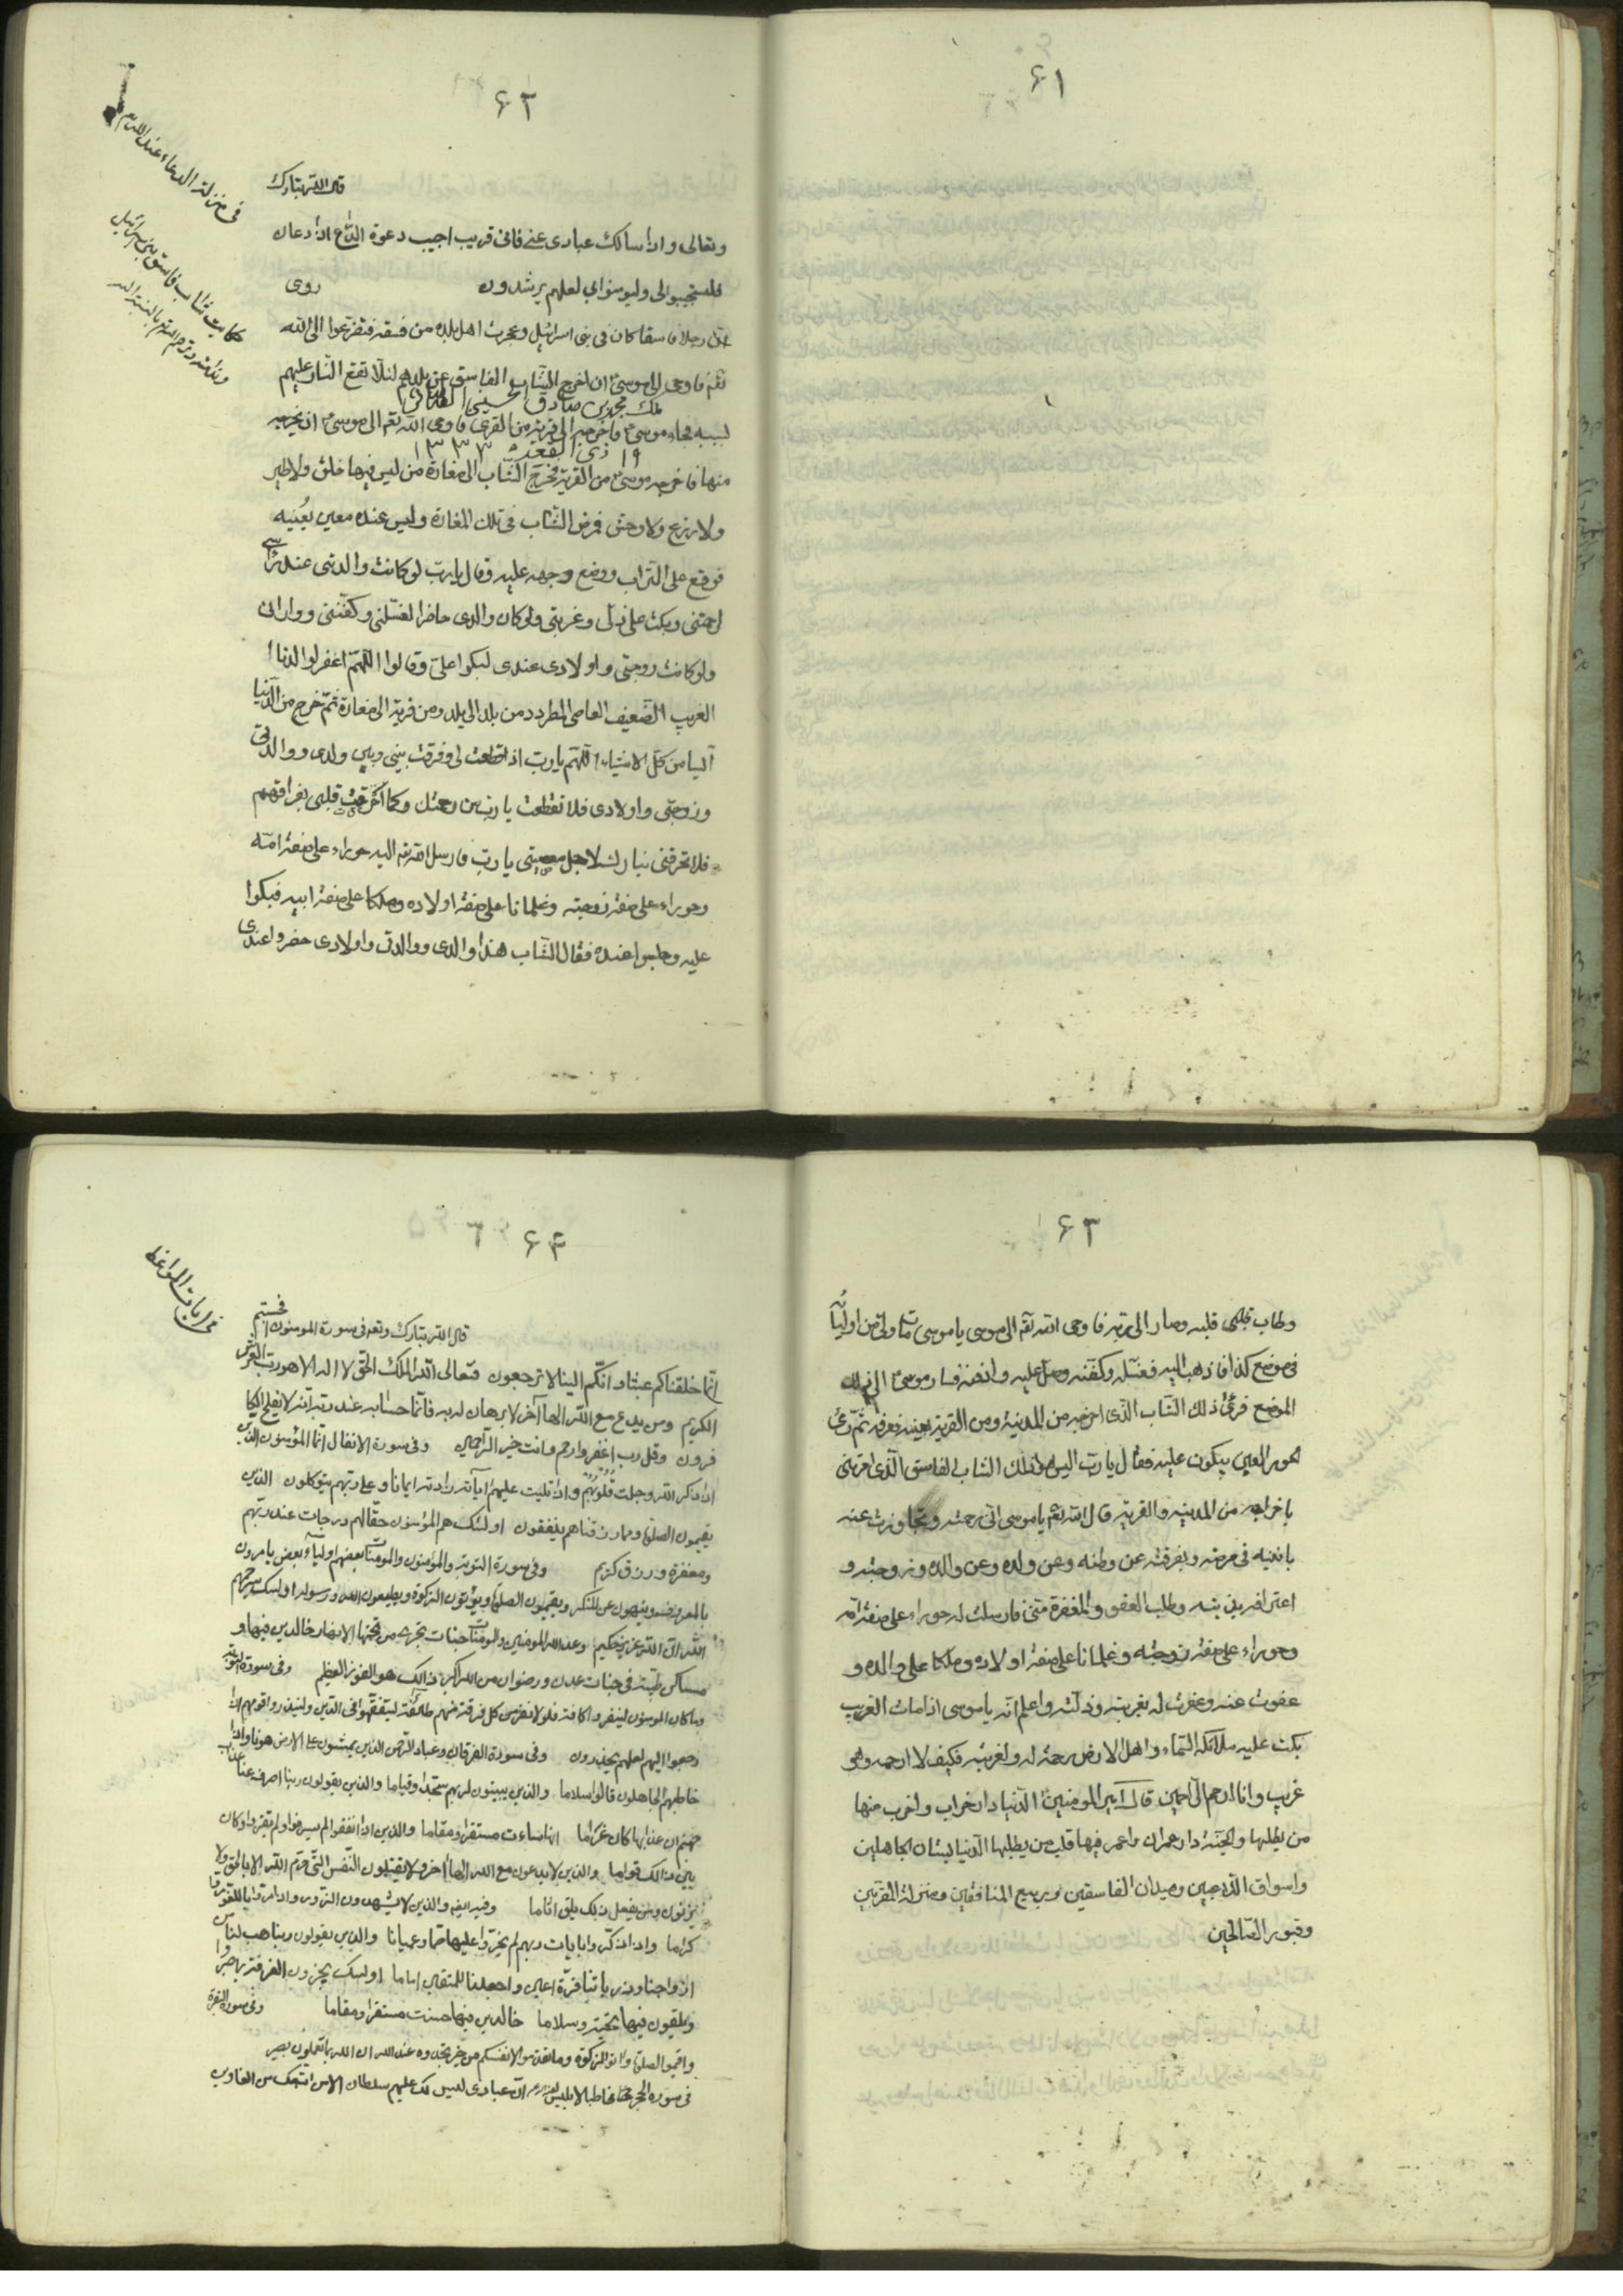 ۶۱
۶۲
فی منزلة الدعاء عند الله
حکایت شاب فاسق بنی اسرائیل
قال الله تبارک
وتعالی واذا سالک عبادی عنی فانی قریب اجیب دعوة الداع اذا دعان
فلیستجیبوا لی ولیومنوا بی لعلهم یرشدون روی
ان رجلا فاسقا کان فی بنی اسرائیل وعجزت اهل بلده من فسقه فتضرعوا الی الله
تعه فاوحی الی موسی ان اخرج الشاب الفاسق عن بلدهم لئلا تقع النار علیهم
ملک محمد بن صادق الحسینی
بسببه فجاء موسی فاخرجه الی قریة من القری فاوحی الله تعه الی موسی ان یخرجه
۱۹ ذی القعدة ۱۳۳۳
منها فاخرجه موسی من القریة فخرج الشاب الی مغارة من لیس فیها خلق ولا طیر
ولا زرع ولا وحش فمرض الشاب فی تلک المغارة ولیس عنده معین یعینه
فوقع علی التراب ووضع وجهه علیه وقال یا رب لو کانت والدتی عند راسی
لرحمتنی وبکت علی ذلی وغربتی ولو کان والدی حاضرا لغسلنی وکفننی ووارانی
ولو کانت زوجتی واولادی عندی لبکوا علی وقالوا اللهم اغفر لوالدنا
الغریب الضعیف العاصی المطرد من بلد الی بلد ومن قریة الی مغارة ثم تخرج من الدنیا
آلیا من کل الاشیاء اللهم یا رب اذ قطعت لی وفرقت بینی وبین ولدی ووالدتی
وزوجتی واولادی فلا تقطعت یا رب من رحمتک وکما احرقت قلبی بفراقهم
فلا تحرقنی بنارک لاجل معصیتی یا رب فارسل الله تعه الیه حوراء علی صفة امه
وحوراء علی صفة زوجته وغلمانا علی صفة اولاده وملکا علی صفة ابیه فبکوا
علیه وجلسوا عنده فقال الشاب هذا والدی ووالدتی واولادی حضروا عندی
۶۳
وطاب قلبی قلبه وصار الی تربه فاوحی الله تعه الی موسی یا موسی مات ولی من اولیائه
فی موضع کذا فاذهب الیه فغسله وکفنه وصل علیه وادفنه فسار موسی الی ذلک
الموضع فرئی ذلک الشاب الذی اخرجه من المدینة ومن القریة بعینه فعرفه ثم رئی
الحور العین یبکون علیه فقال یا رب الیس هو ذلک الشاب الفاسق الذی امرتنی
باخراجه من المدینة والقریة قال الله تعه یا موسی انی رحمته وتجاوزت عنه
بانینه فی مرضه وبفرقته عن وطنه وعن ولده وعن والده وزوجته و
اعترافه بذنبه وطلب العفو والمغفرة منی فارسلت له حوراء علی صفة امه
وحوراء علی صفة زوجته وغلمانا علی صفة اولاده وملکا علی والده و
عفوت عنه وغفرت له بغربته وذلته واعلم انه یا موسی اذا مات الغریب
بکت علیه ملائکة السماء واهل الارض رحمة له ولغربته فکیف لا ارحمه وهو
غریب وانا ارحم الراحمین قال امیر المومنین الدنیا دار خراب واخرب منها
من یطلبها والجنة دار عمران واعمر فیها قلب من یطلبها الدنیا بستان الجاهلین
واسواق الذاهبین ومیدان الفاسقین وربیع المنافقین ومنزلة المقربین
وقبور الصالحین
۶۴
فی ایات المواعظ
قال الله تبارک وتعه فی سورة المومنون افحسبتم
انما خلقناکم عبثا وانکم الینا لا ترجعون فتعالی الله الملک الحق لا اله الا هو رب العرش
الکریم ومن یدع مع الله الها آخر لا برهان له به فانما حسابه عند ربه انه لا یفلح الکا
فرون وقل رب اغفر وارحم وانت خیر الراحمین وفی سورة الانفال انما المؤمنون الذین
اذا ذکر الله وجلت قلوبهم واذا تلیت علیهم ایاته زادتهم ایمانا وعلی ربهم یتوکلون الذین
یقیمون الصلوة ومما رزقناهم ینفقون اولئک هم المؤمنون حقا لهم درجات عند ربهم
ومغفرة ورزق کریم وفی سورة التوبة والمؤمنون والمومنات بعضهم اولیاء بعض یامرون
بالمعروف وینهون عن المنکر ویقیمون الصلوة ویؤتون الزکوة ویطیعون الله ورسوله اولئک سیرحمهم
الله ان الله عزیز حکیم وعد الله المومنین والمومنات جنات تجری من تحتها الانهار خالدین فیها و
مساکن طیبة فی جنات عدن ورضوان من الله اکبر ذالک هو الفوز العظیم وفی سورة التوبة
وما کان المومنون لینفروا کافة فلولا نفر من کل فرقة منهم طائفة لیتفقهوا فی الدین ولینذروا قومهم اذا
رجعوا الیهم لعلهم یحذرون وفی سورة الفرقان وعباد الرحمن الذین یمشون علی الارض هونا واذا
خاطبهم الجاهلون قالوا سلاما والذین یبیتون لربهم سجدا وقیاما والذین یقولون ربنا اصرف عنا عذاب
جهنم ان عذابها کان غراما انها ساءت مستقرا ومقاما والذین اذا انفقوا لم یسرفوا ولم یقتروا وکان
بین ذالک قواما والذین لا یدعون مع الله الها آخر ولا یقتلون النفس التی حرم الله الا بالحق ولا
یزنون ومن یفعل ذلک یلق اثاما وفیه ایضا والذین لا یشهدون الزور واذا مروا باللغو مروا
کراما واذا ذکروا بایات ربهم لم یخروا علیها صما وعمیانا والذین یقولون ربنا هب لنا من
ازواجنا وذریاتنا قرة اعین واجعلنا للمتقین اماما اولئک یجزون الغرفة بما صبروا
ویلقون فیها تحیة وسلاما خالدین فیها حسنت مستقرا ومقاما وفی سورة البقرة
واقیموا الصلوة واتوا الزکوة وما تقدموا لانفسکم من خیر تجدوه عند الله ان الله بما تعملون بصیر
فی سورة الحجر مخاطبا لابلیس ان عبادی لیس لک علیهم سلطان الا من اتبعک من الغاوین